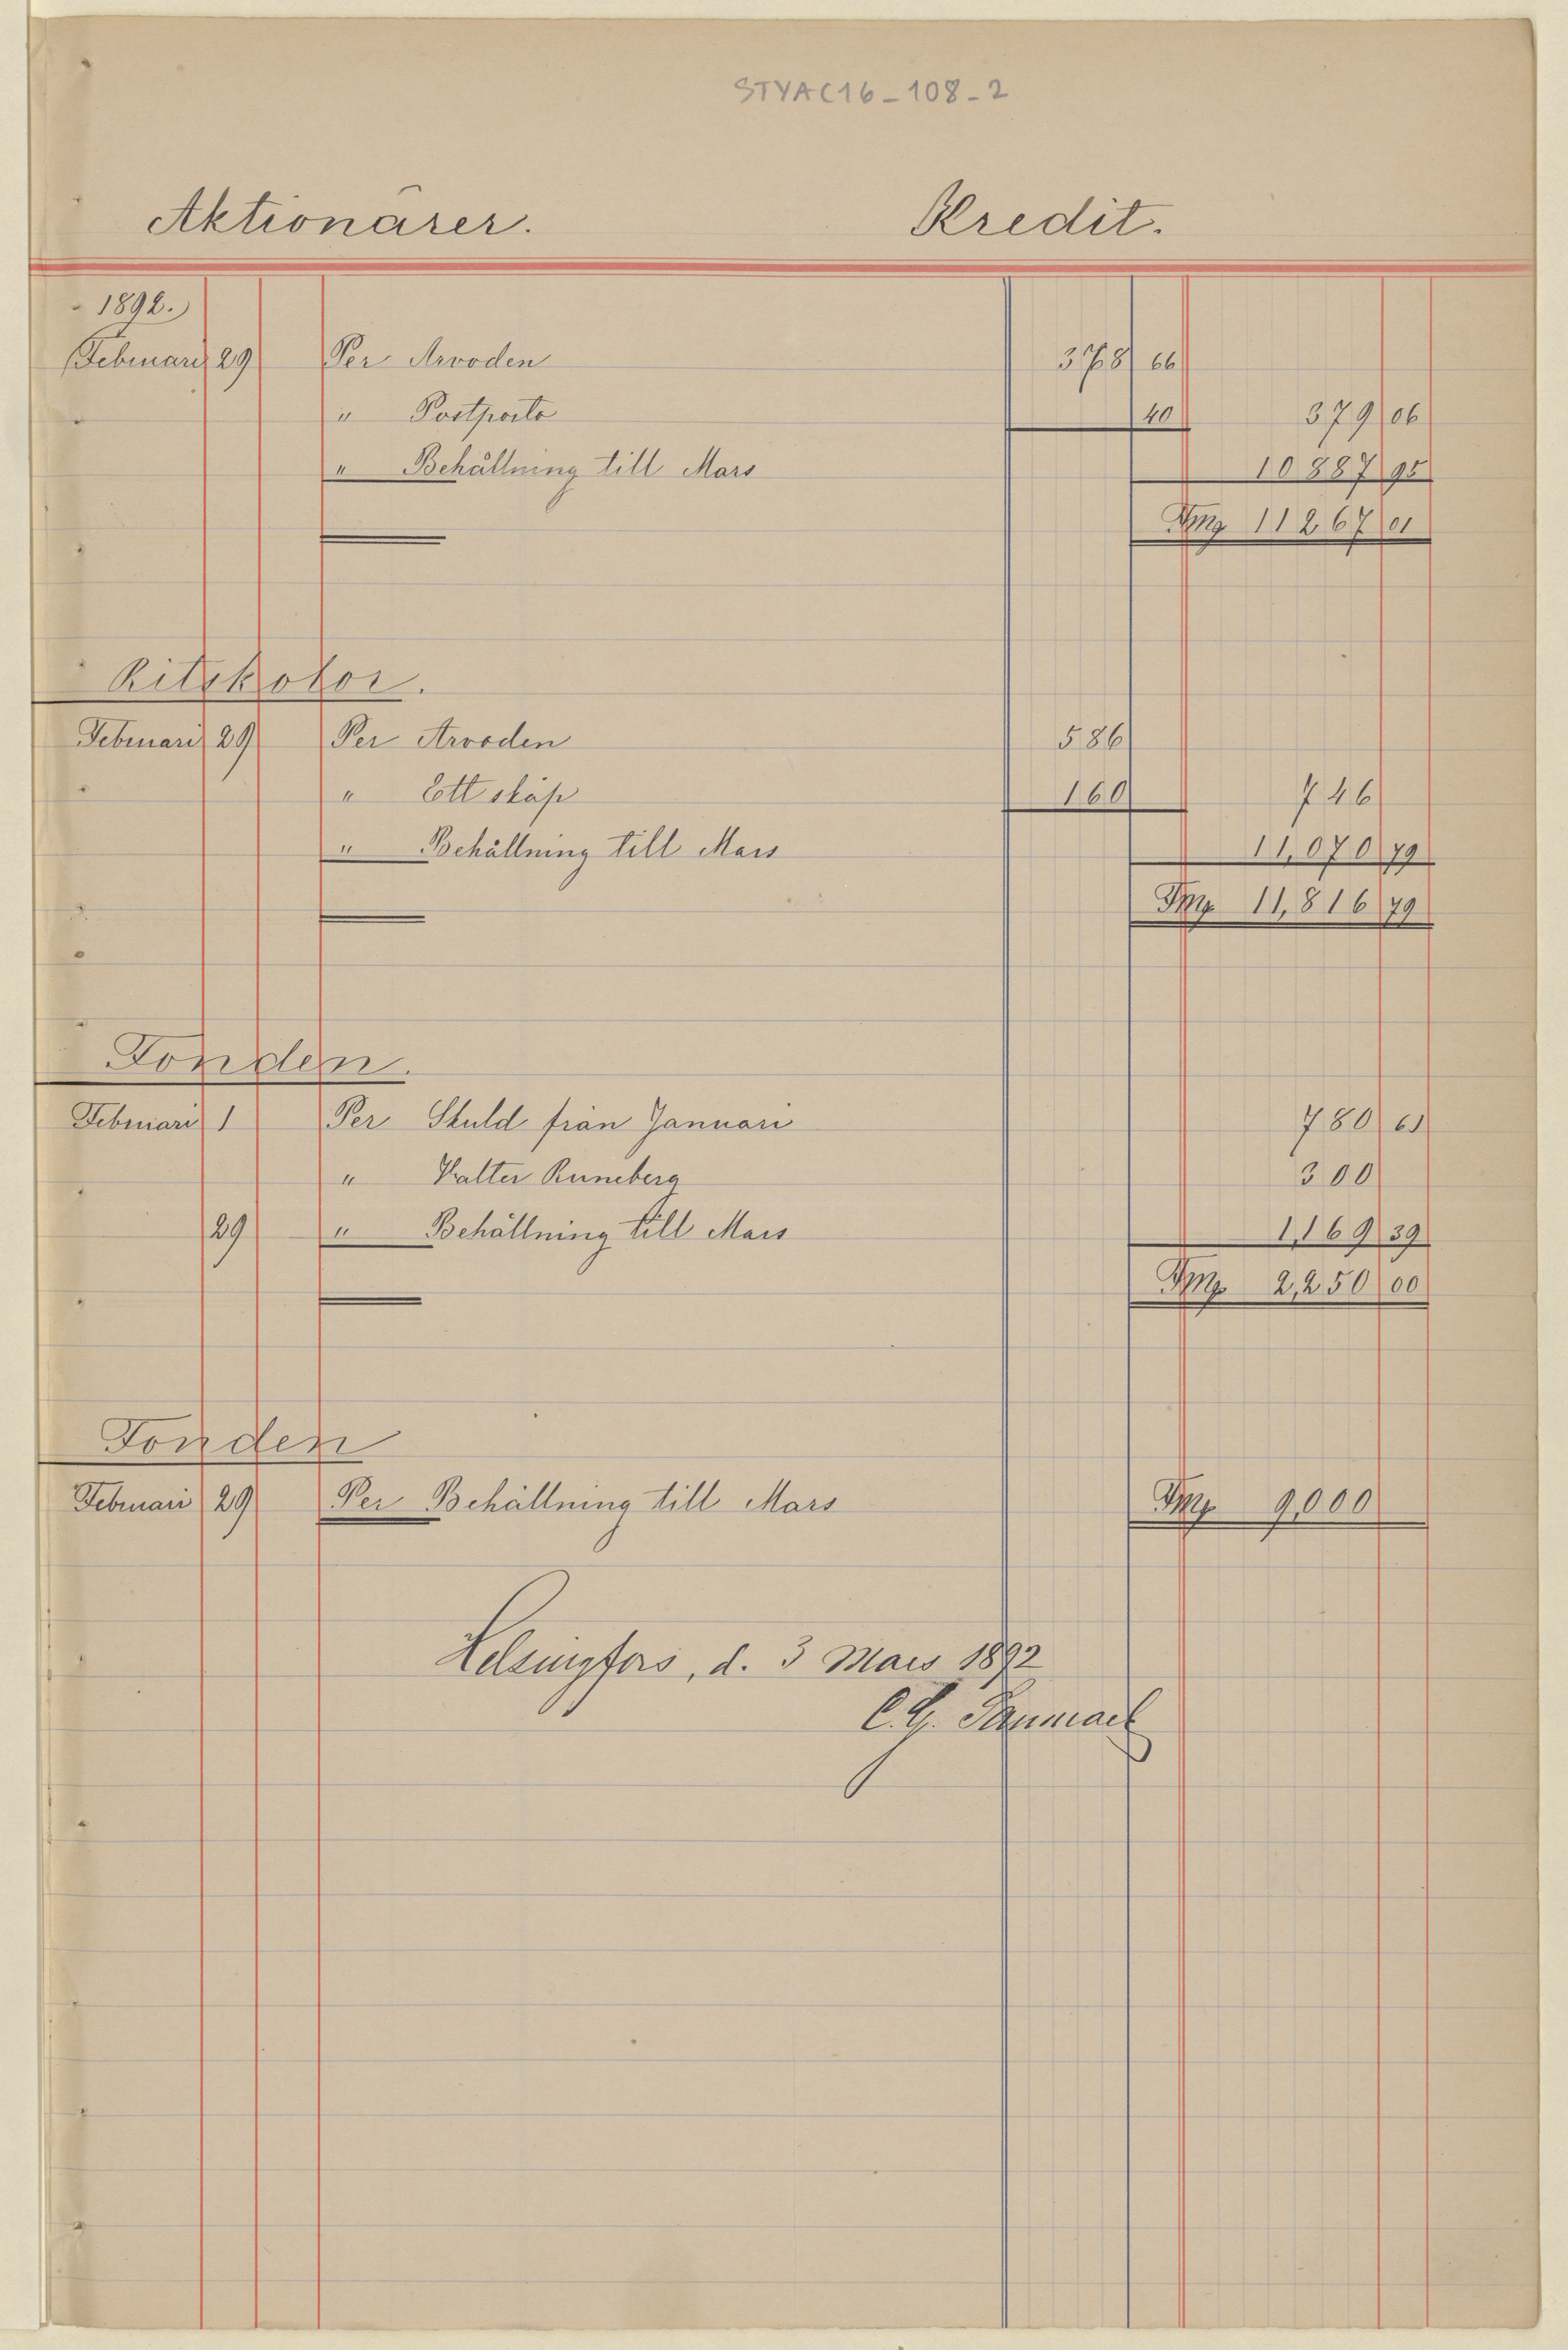 STYAC16-108-2
Aktionärer. Kredit.
1892.
Februari 29 Per Arvoden 378 66
" Postporto 40 379 06
" Behållning till Mars 10887 95
Fmg 11267 01
Ritskolor.
Februari 29 Per Arvoden 586
" Ett skåp 160 746
" Behållning till Mars 11,070 79
Fmg 11,816 79
Fonden.
Februari 1 Per Skuld från Januari 780 61
" Walter Runeberg 300
29 " Behållning till Mars 1,169 39
Fmg 2,250 00
Fonden
Februari 29 Per Behållning till Mars Fmg 9,000
Helsingfors, d. 3 Mars 1892
C. G.